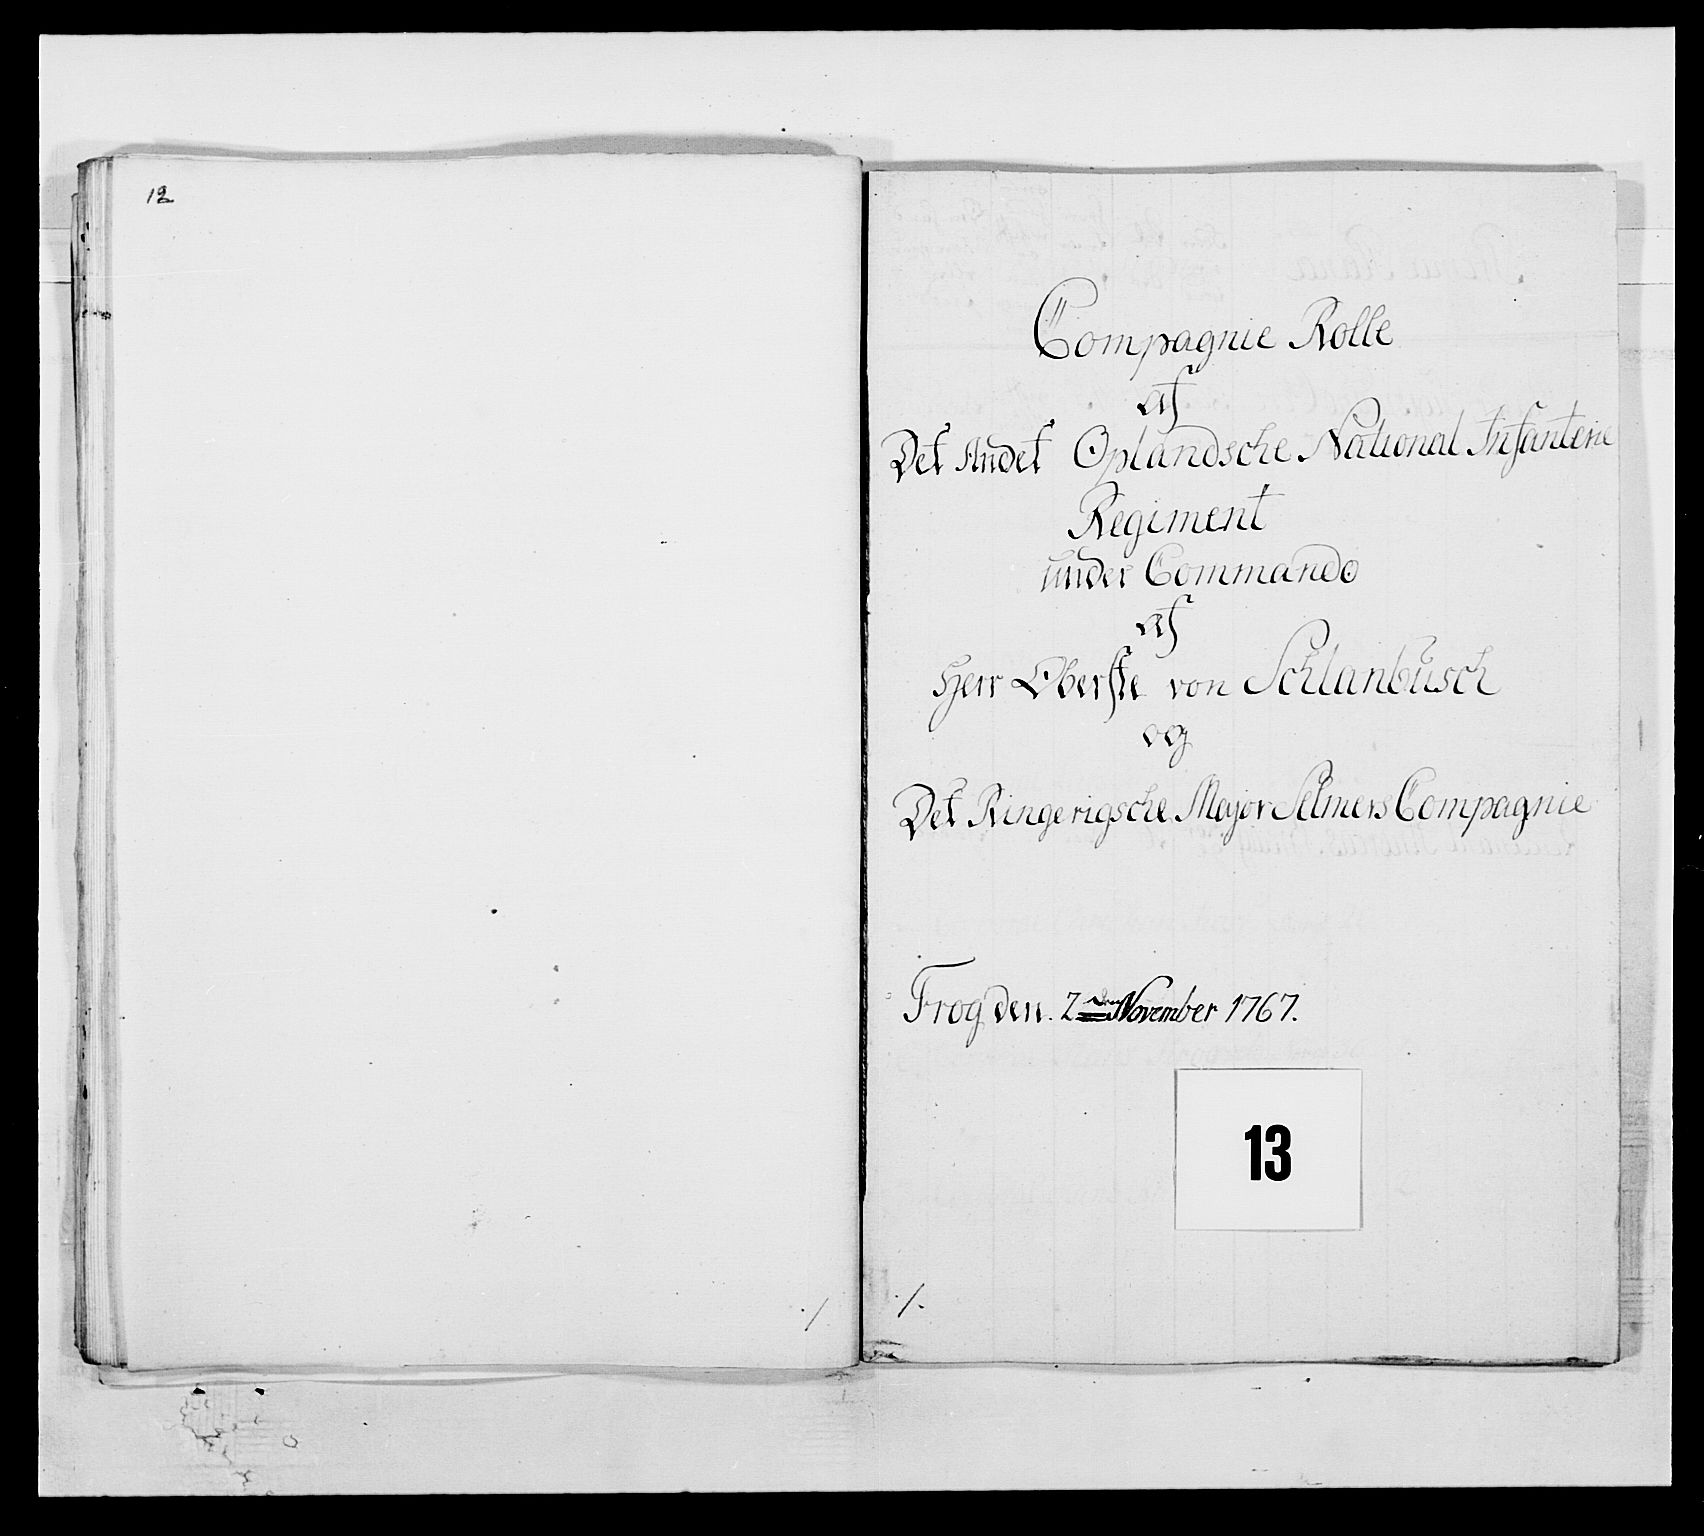 12
Compagnie Rolle
af
Det Andet Oplandsche National Infanterie
Regiment
under Commando
af
Herr Oberste von Schlanbusch
og
Det Ringerigsche Major Selmers Compagnie
Frog den. 2den November 1767.
13